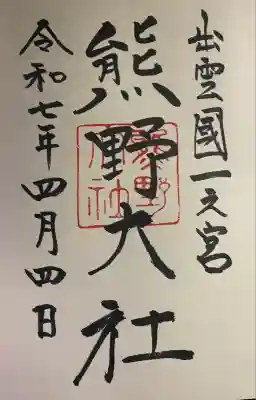 出雲國一之宮
熊野大社
令和七年四月四日
熊野大社